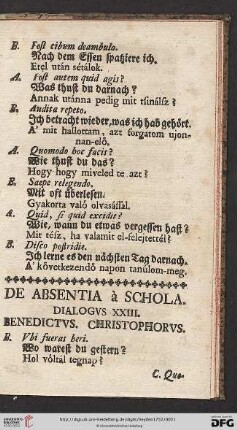 B. Post cibum deambulo.
Nach dem Essen spatziere ich.
Etel után sétálok.
A. Post autem quid agis?
Was thust du darnach?
Annak utánna pedig mit tsinálsz?
B. Audita repeto.
Ich betracht wieder, was ich hab gehört.
A' mit hallottam, azt forgatom ujon-
nan-elő.
A. Quomodo hoc facis?
Wie thust du das?
Hogy hogy miveled te azt?
B. Saepe relegendo.
Mit oft überlesen.
Gyakorta való olvasással.
A. Quid, si quid excidit?
Wie, wann du etwas vergessen hast?
Mit tész, ha valamit el-felejtettél?
B. Disco postridie.
Ich lerne es den nächsten Tag darnach.
A' következendő napon tanúlom-meg.
DE ABSENTIA à SCHOLA.
DIALOGVS XXIII.
BENEDICTVS. CHRISTOPHORVS.
B. Vbi fueras heri.
Wo warest du gestern?
Hol vóltál tegnap?
C. Quo-